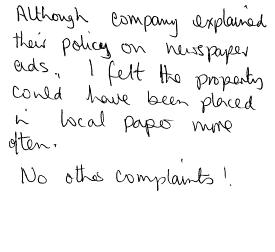 Although company explained
their policy on newspaper
ads, I felt the property
could have been placed
in local paper more
often.
No other complaints!